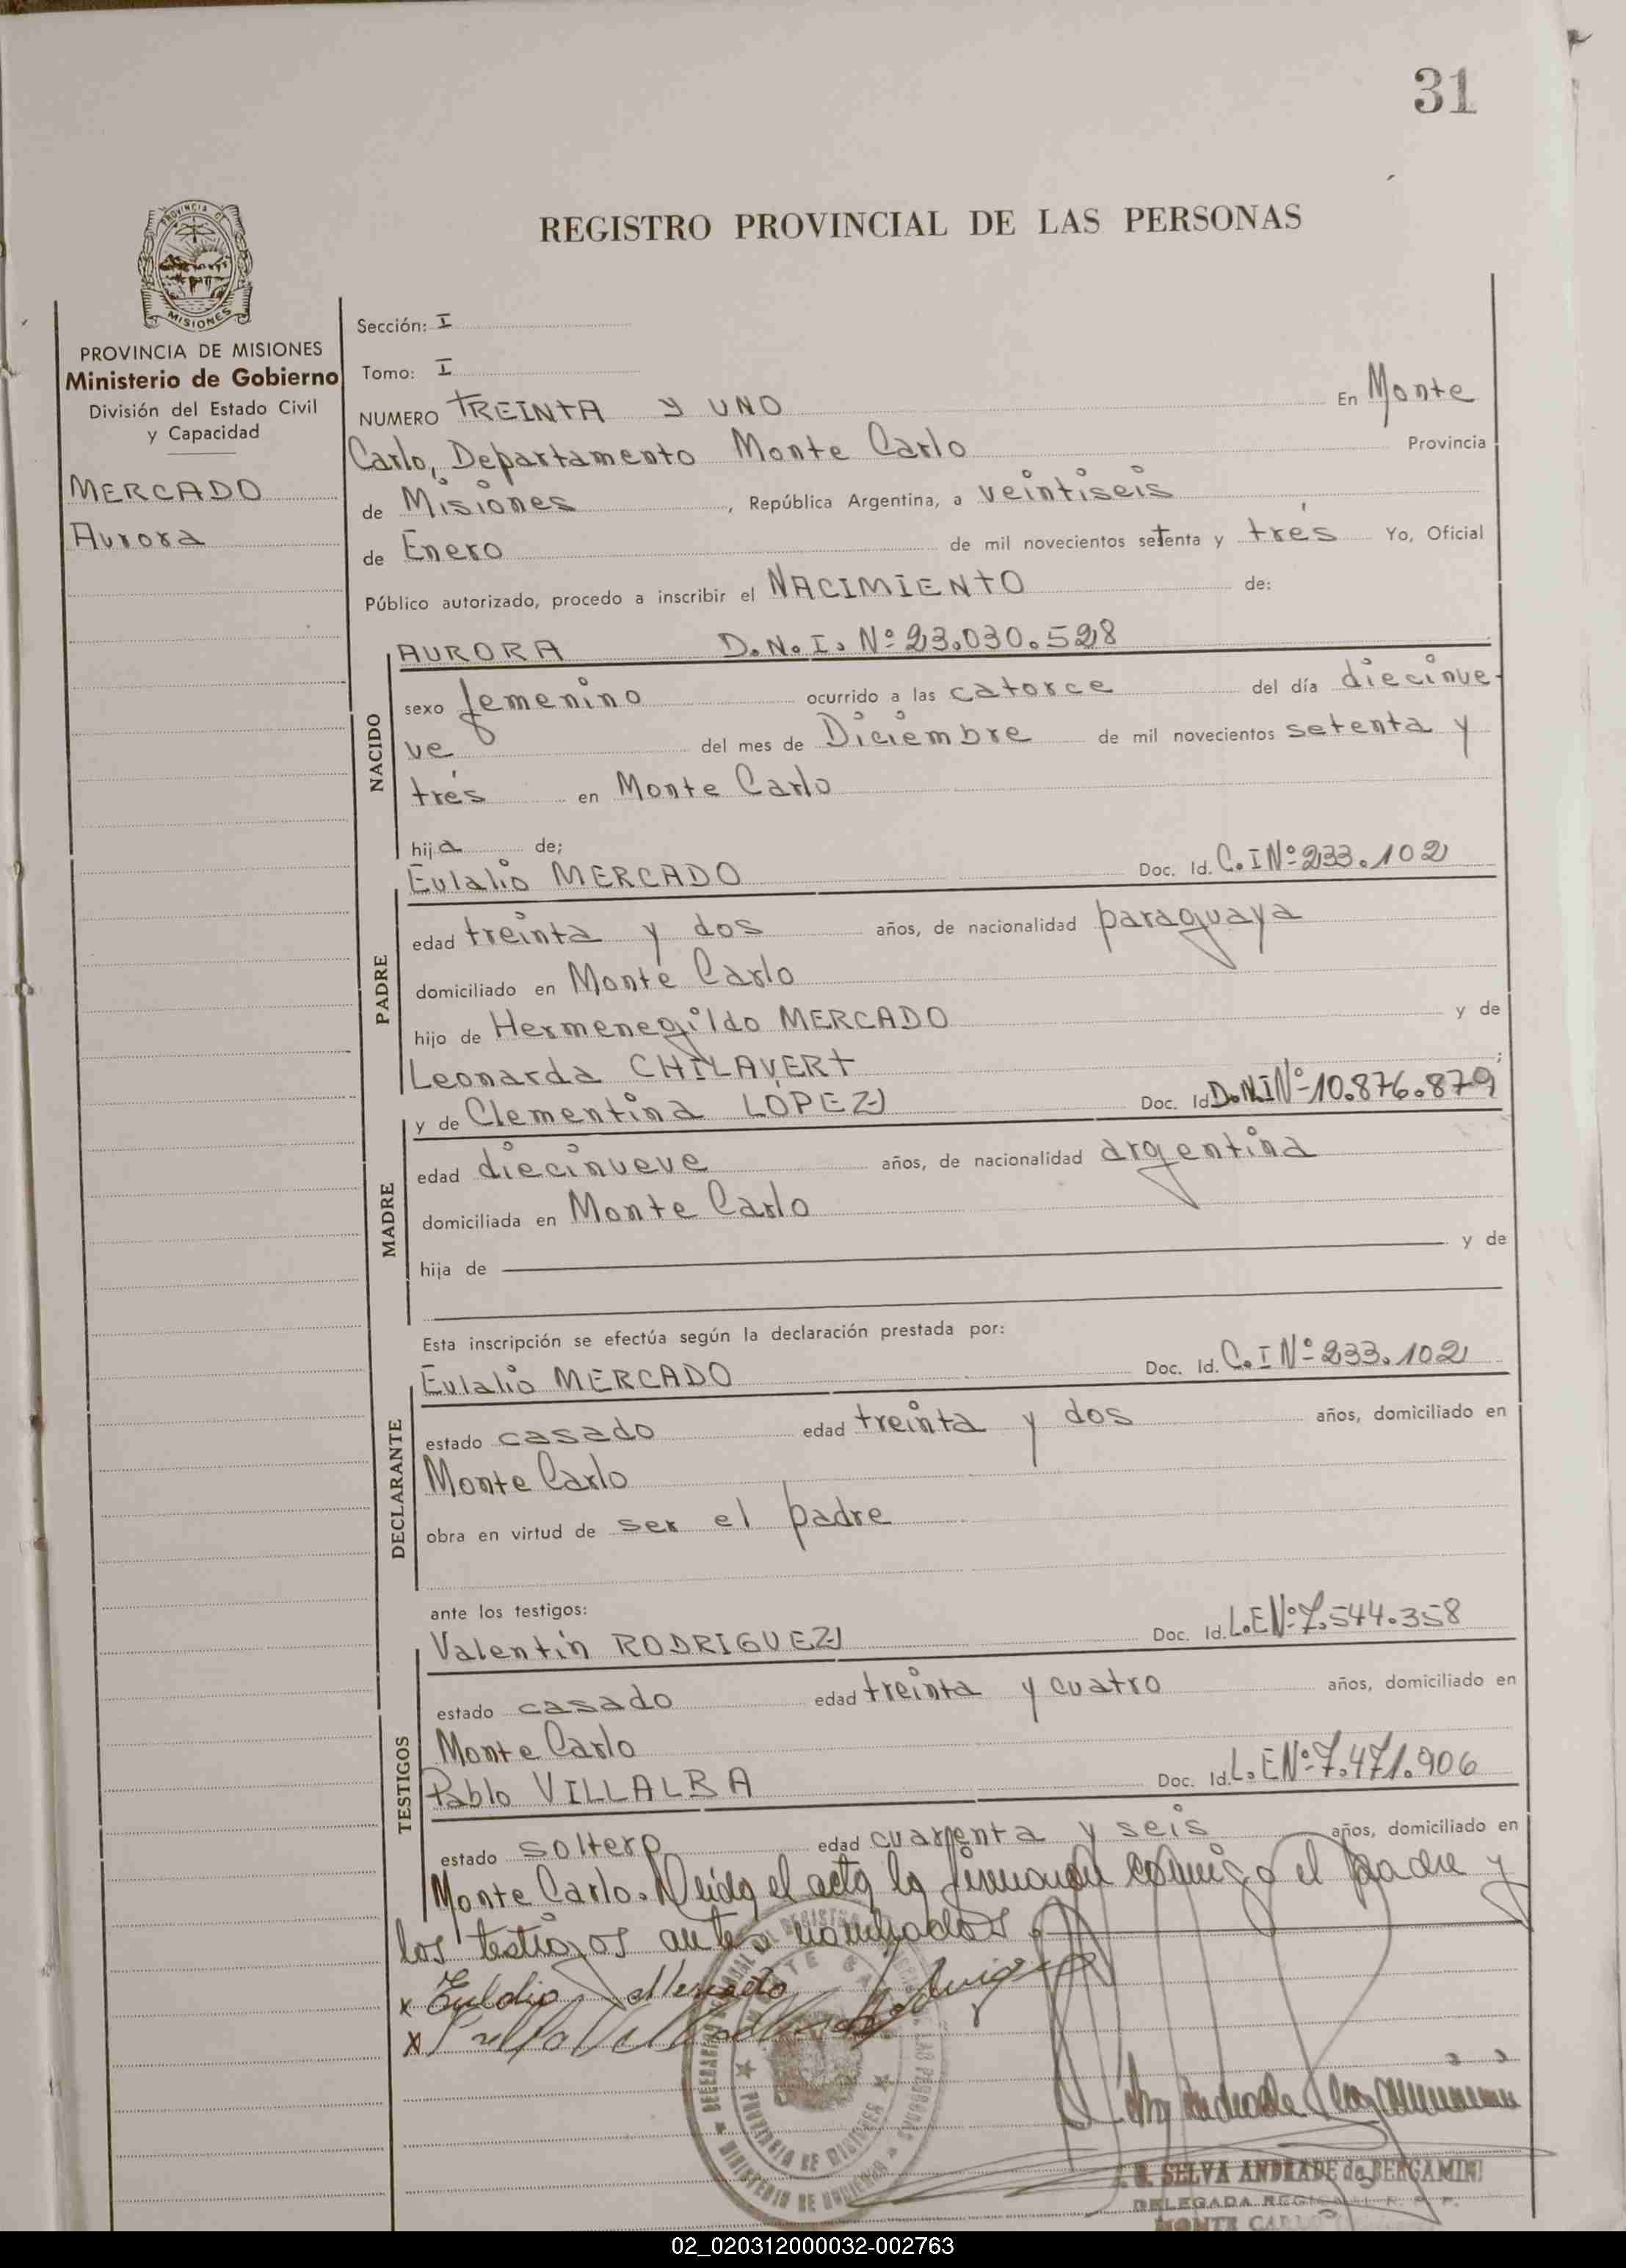 31
REGISTRO PROVINCIAL DE LAS PERSONAS
PROVINCIA DE MISIONES
Ministerio de Gobierno
División del Estado Civil
y Capacidad
MERCADO
Aurora
Sección: I
Tomo: I
NUMERO TREINTA y UNO En Monte
Carlo, Departamento Monte Carlo Provincia
de Misiones, República Argentina, a veintiseis
de Enero de mil novecientos setenta y trés Yo, Oficial
Público autorizado, procedo a inscribir el NACIMIENTO de:
NACIDO
AURORA D.N.I. Nº 23.030.528
sexo femenino ocurrido a las catorce del día diecinue-
ve del mes de Diciembre de mil novecientos setenta y
trés en Monte Carlo
hija de;
PADRE
Eulalio MERCADO Doc. Id. C.I Nº 233.102
edad treinta y dos años, de nacionalidad paraguaya
domiciliado en Monte Carlo
hijo de Hermenegildo MERCADO y de
Leonarda CHILAVERT;
MADRE
y de Clementina LOPEZ Doc. Id D.N.I Nº 10.876.879
edad diecinueve años, de nacionalidad argentina
domiciliada en Monte Carlo
hija de y de
Esta inscripción se efectúa según la declaración prestada por:
DECLARANTE
Eulalio MERCADO Doc. Id. C.I Nº 233.102
estado casado edad treinta y dos años, domiciliado en
Monte Carlo
obra en virtud de ser el padre
ante los testigos:
TESTIGOS
Valentín RODRIGUEZ Doc. Id. L.E Nº 7.544.358
estado casado edad treinta y cuatro años, domiciliado en
Monte Carlo
Pablo VILLALBA Doc. Id. L.E Nº 7.471.906
estado soltero edad cuarenta y seis años, domiciliado en
Monte Carlo. Leida el acta la firmando conmigo el padre y
los testigos antes nombrados.
x Eulalio Mercado
x
PROVINCIA DE MISIONES
MINISTERIO DE GOBIERNO
SELVA ANDRADE de BERGAMINI
DELEGADA
MONTE CARLO
02_020312000032-002763